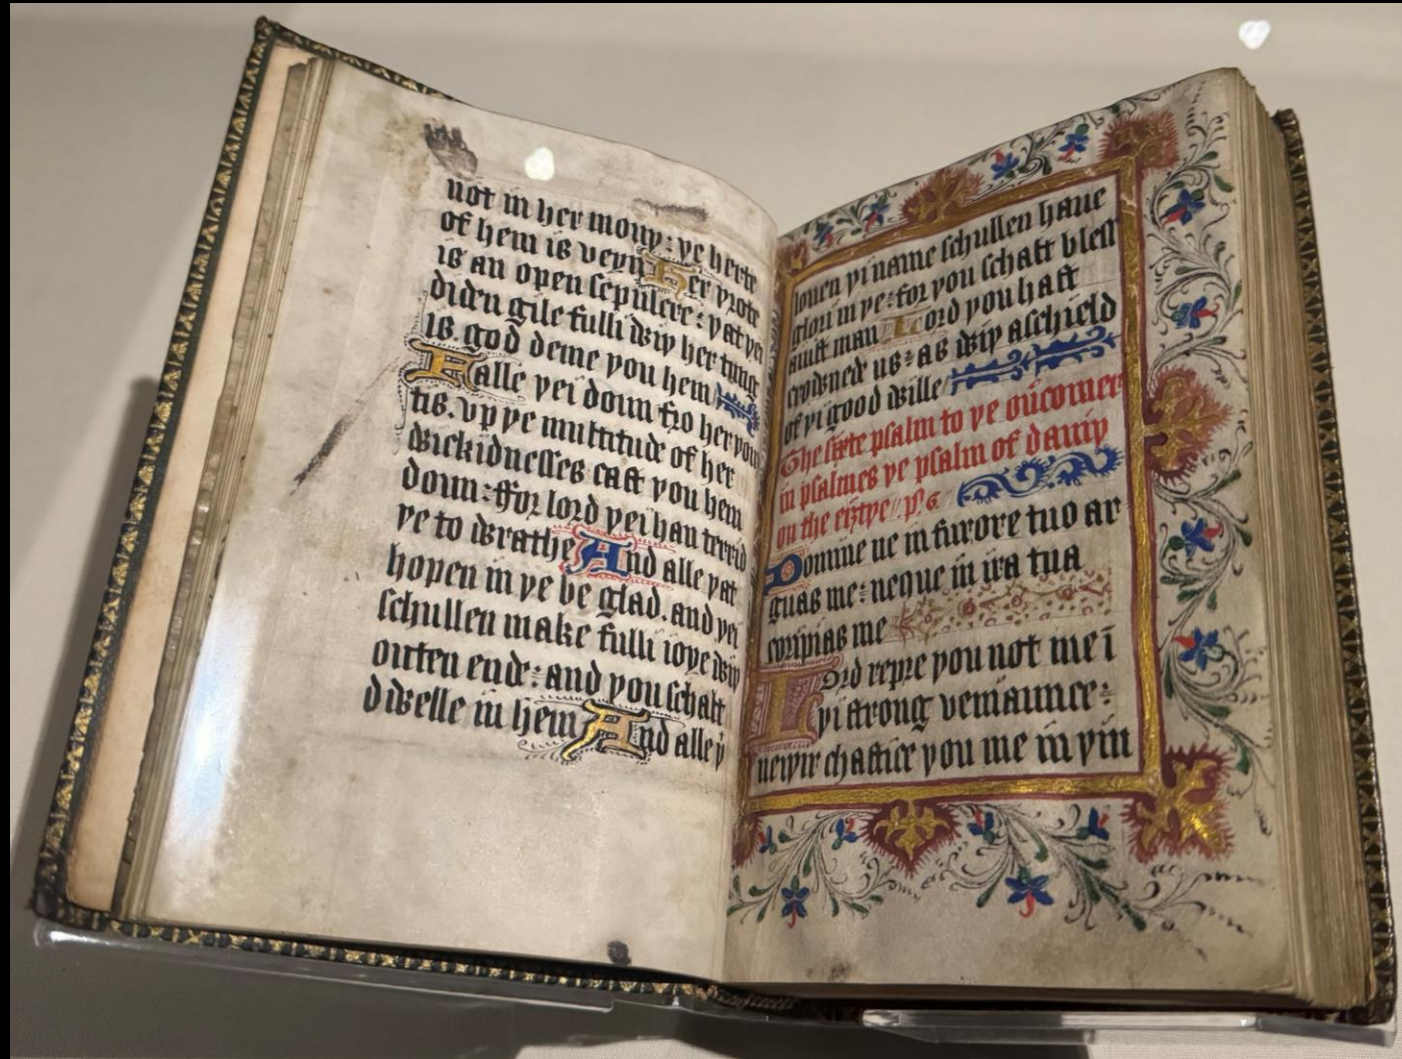 not in her mouþ: þe herte
of hem is veyn Her þrote
is an open sepulcre: þat þei
diden gile fulli wiþ her tung
is. god deme þou hem
Falle þei doun fro her þou
tis. up þe multitude of her
wickidnesses cast þou hem
doun: ffor lord þei han terrid
þe to wrathe And alle þat
hopen in þe be glad. and þei
schullen make fulli ioye wiþ
outen ende: and þou schalt
dwelle in hem And alle þ
louen þi name schullen haue
glori in þe: for þou schalt bless
a iust man Lord þou hast
crowned us: as wiþ a schield
of þi good wille
The sixte psalm to þe ouercomer
in psalmes þe psalm of dauiþ
on the eiȝtþe ps 6
Domine ne in furore tuo ar
guas me: neque in ira tua
coripias me
Lord repre þou not me ī
þi strong veniaunce:
neiþir chastice þou me in þin